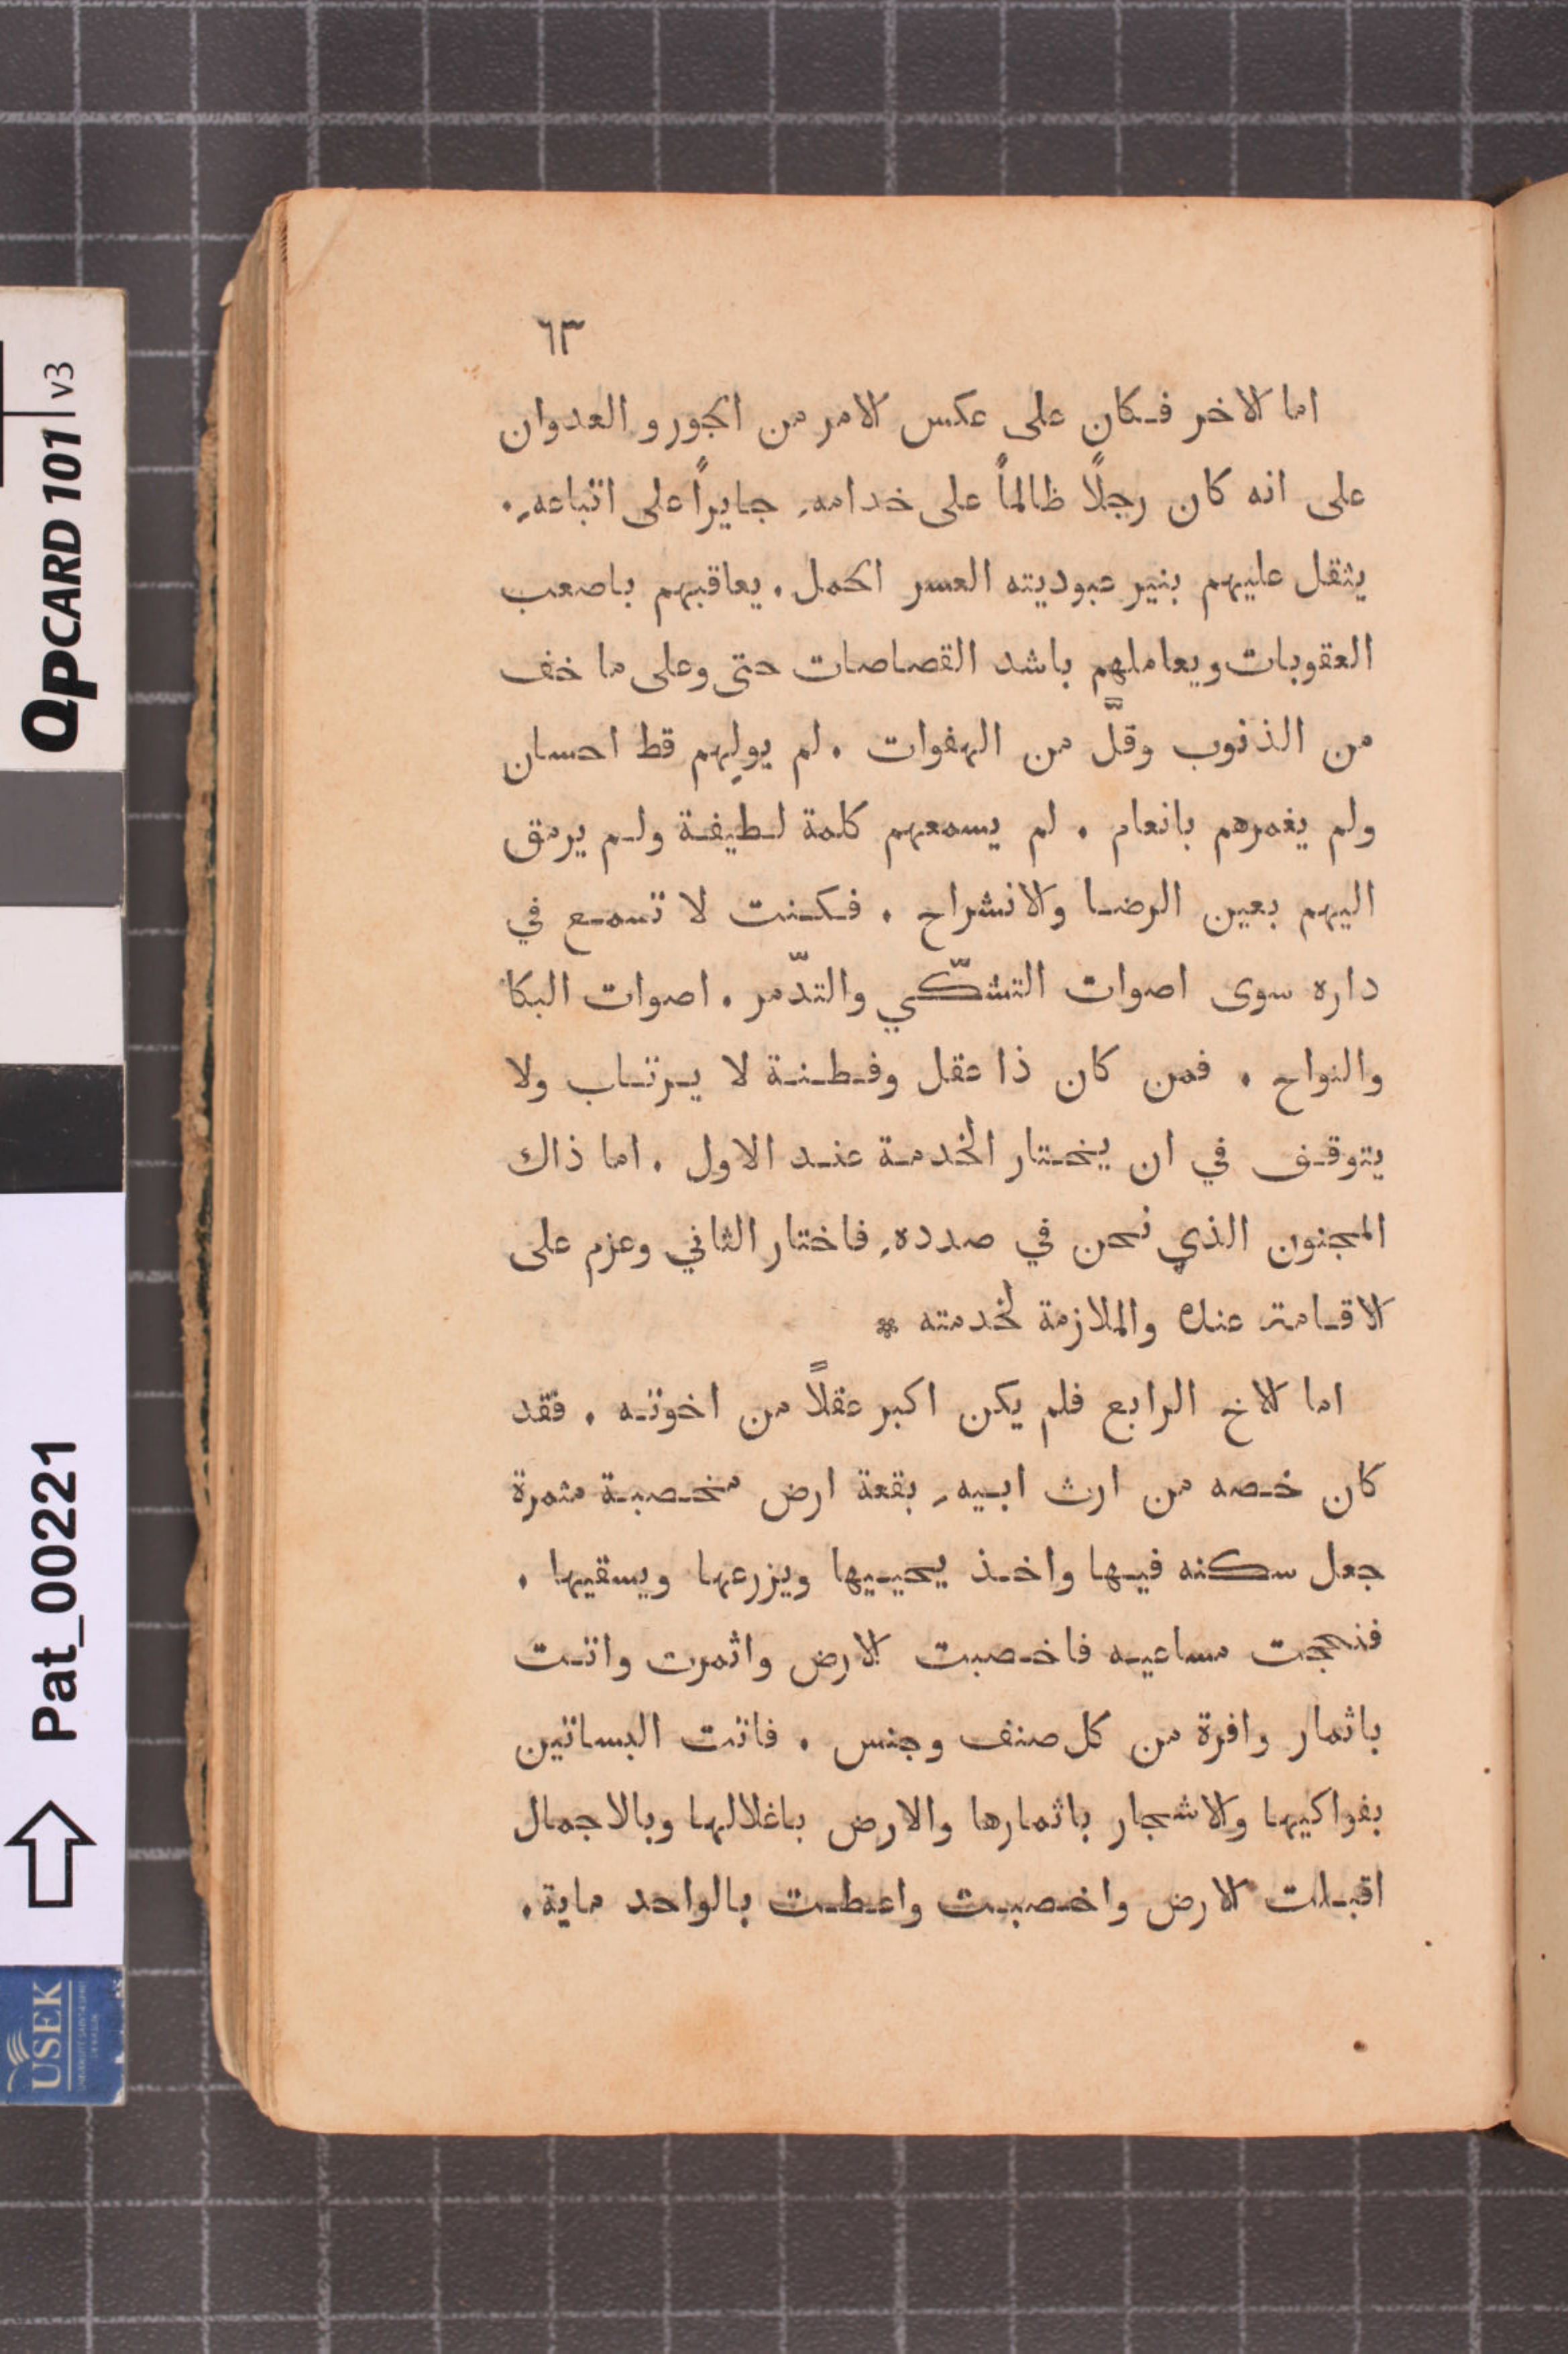 ٦٣
اما الاخر فكان على عكس الامر من الجور و العدوان
على انه كان رجلًا ظالمًا على خدامهِ جايرًا على اتباعهِ.
يثقل عليهم بنير عبوديته العسر الحمل. يعاقبهم باصعب
العقوبات ويعاملهم باشد القصاصات حتى وعلى ما خف
من الذنوب وقلَّ من الهفوات. لم يولِهم قط احسان
ولم يغمرهم بانعام. لم يسمعهم كلمة لطيفة ولم يرمق
اليهم بعين الرضا والانشراح. فكنت لا تسمع في
داره سوى اصوات التشكّي والتدّمر. اصوات البكا
والنواح. فمن كان ذا عقل وفطنة لا يرتاب ولا
يتوقف في ان يختار الخدمة عند الاول. اما ذاك
المجنون الذي نحن في صددهِ فاختار الثاني وعزم على
الاقامة عنده والملازمة لخدمته *
اما الاخ الرابع فلم يكن اكبر عقلاً من اخوته. فقد
كان خصه من ارث ابيهِ بقعة ارض مخصبة مثمرة
جعل سكنه فيها واخذ يحييها ويزرعها ويسقيها.
فنجحت مساعيه فاخصبت الارض واثمرت واتت
باثمار وافرة من كل صنف وجنس. فاتت البساتين
بفواكيها والاشجار باثمارها والارض باغلالها وبالاجمال
اقبلت الارض واخصبت واعطت بالواحد ماية.
QPCARD 101 v3
Pat_00221
USEK